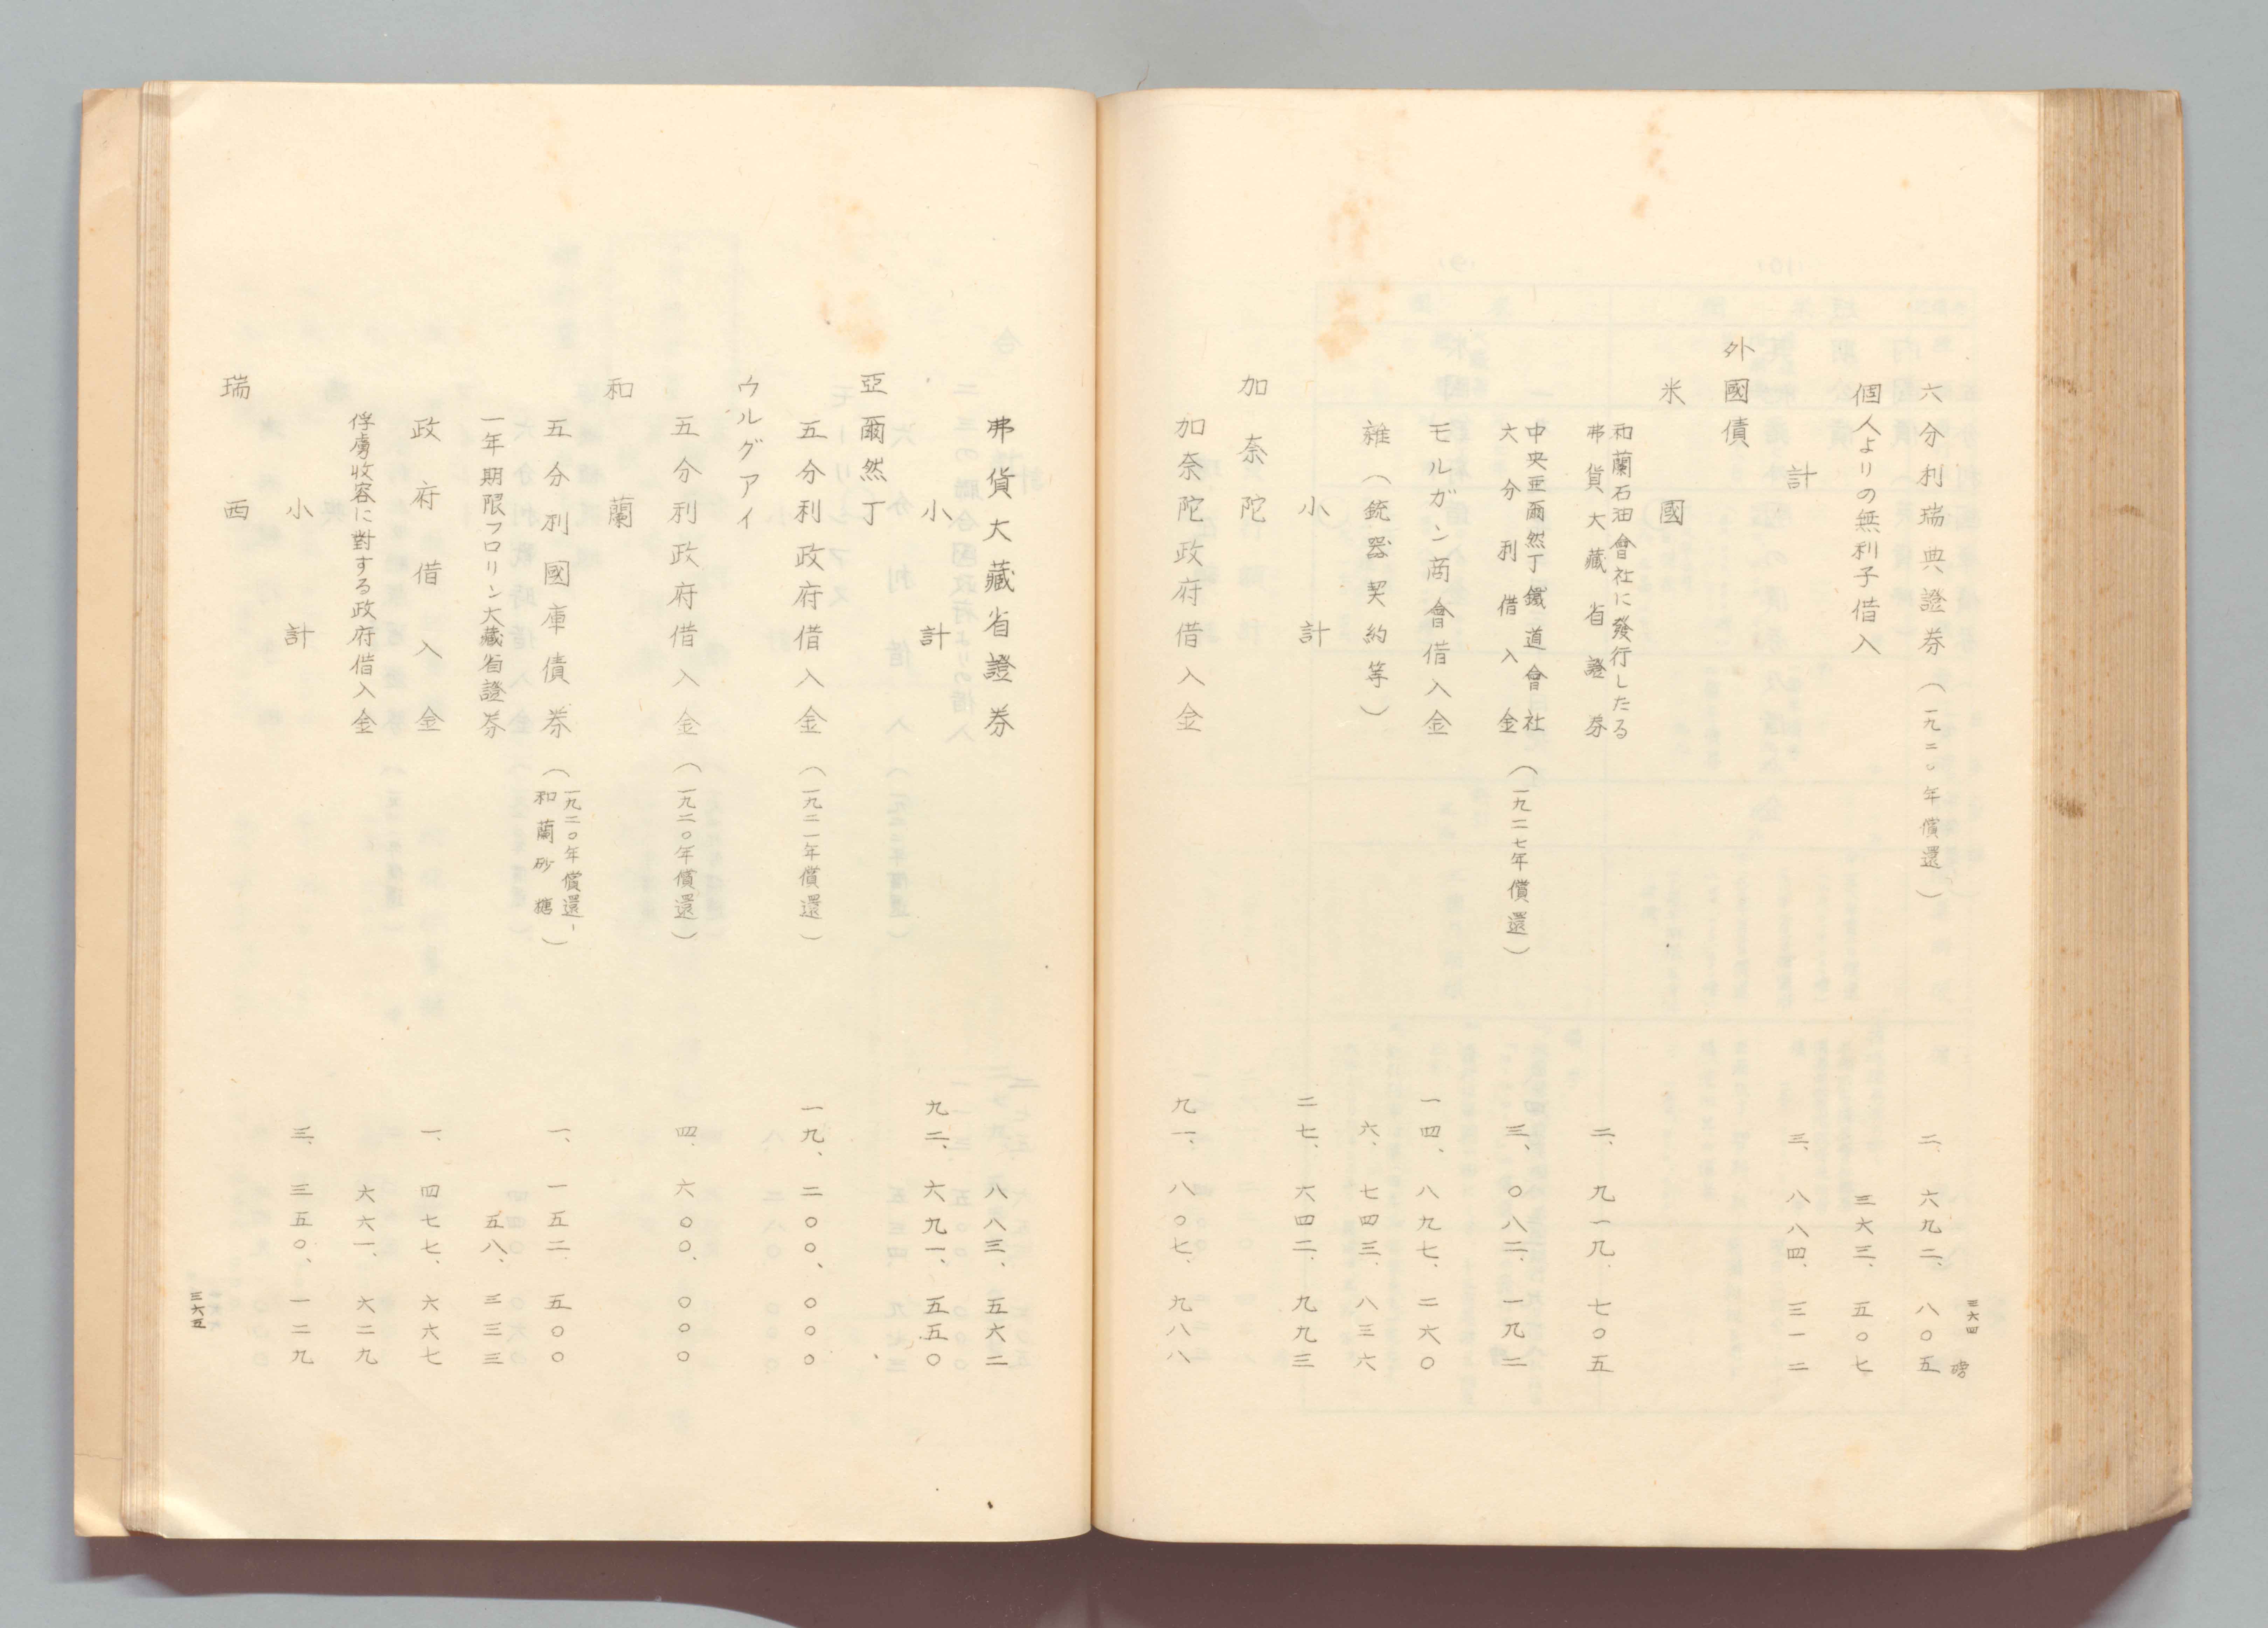 三六四
磅
六分利瑞典證券（一九二〇年償還） 二、六九二、八〇五
個人よりの無利子借入 三六三、五〇七
計 三、八八四、三一二
外國債
米國
和蘭石油會社に發行したる
弗貨大藏省證券 二、九一九、七〇五
中央亜爾然丁鐵道會社
六分利借入金（一九二七年償還） 三、〇八二、一九二
モルガン商會借入金 一四、八九七、二六〇
雜（銃器契約等） 六、七四三、八三六
小計 二七、六四二、九九三
加奈陀
加奈陀政府借入金 九一、八〇七、九八八
弗貨大藏省證券 八八三、五六二
小計 九二、六九一、五五〇
亞爾然丁
五分利政府借入金（一九二一年償還） 一九、二〇〇、〇〇〇
ウルグアイ
五分利政府借入金（一九二〇年償還） 四、六〇〇、〇〇〇
和蘭
五分利國庫債券（一九二〇年償還、和蘭砂糖） 一、一五二、五〇〇
一年期限フロリン大藏省證券 五八、三三三
政府借入金 一、四七七、六六七
俘虜收容に對する政府借入金 六六一、六二九
小計 三、三五〇、一二九
瑞西
三六五